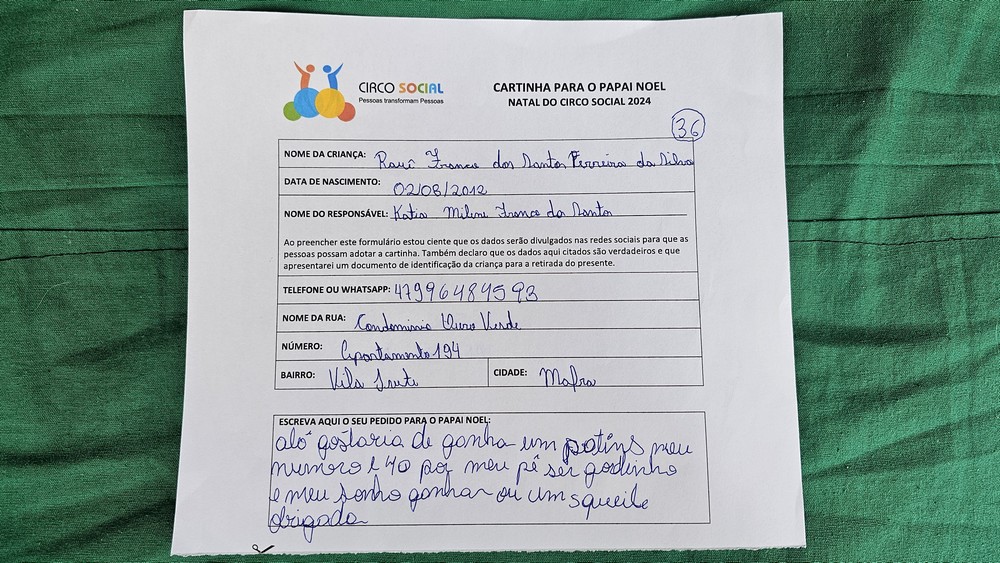 CIRCO SOCIAL
Pessoas transformam Pessoas
CARTINHA PARA O PAPAI NOEL
NATAL DO CIRCO SOCIAL 2024
36
NOME DA CRIANÇA: Rauê Franco dos Santos Ferreira da Silva
DATA DE NASCIMENTO: 02/08/2012
NOME DO RESPONSÁVEL: Katia Milene Franco dos Santos
Ao preencher este formulário estou ciente que os dados serão divulgados nas redes sociais para que as
pessoas possam adotar a cartinha. Também declaro que os dados aqui citados são verdadeiros e que
apresentarei um documento de identificação da criança para a retirada do presente.
TELEFONE OU WHATSAPP: 47996484593
NOME DA RUA: Condominio Ouro Verde
NÚMERO: Apartamento 194
BAIRRO: Vila CIDADE: Mafra
ESCREVA AQUI O SEU PEDIDO PARA O PAPAI NOEL:
alô gostaria de ganha um patins meu
numoro é 40 por meu pé ser godinho
e meu sonho ganhar ou um squeile
obrigada